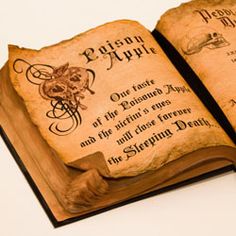 Poison
Apple
One taste
of the Poisoned Apple
and the victim's eyes
will close forever
the Sleeping Death...